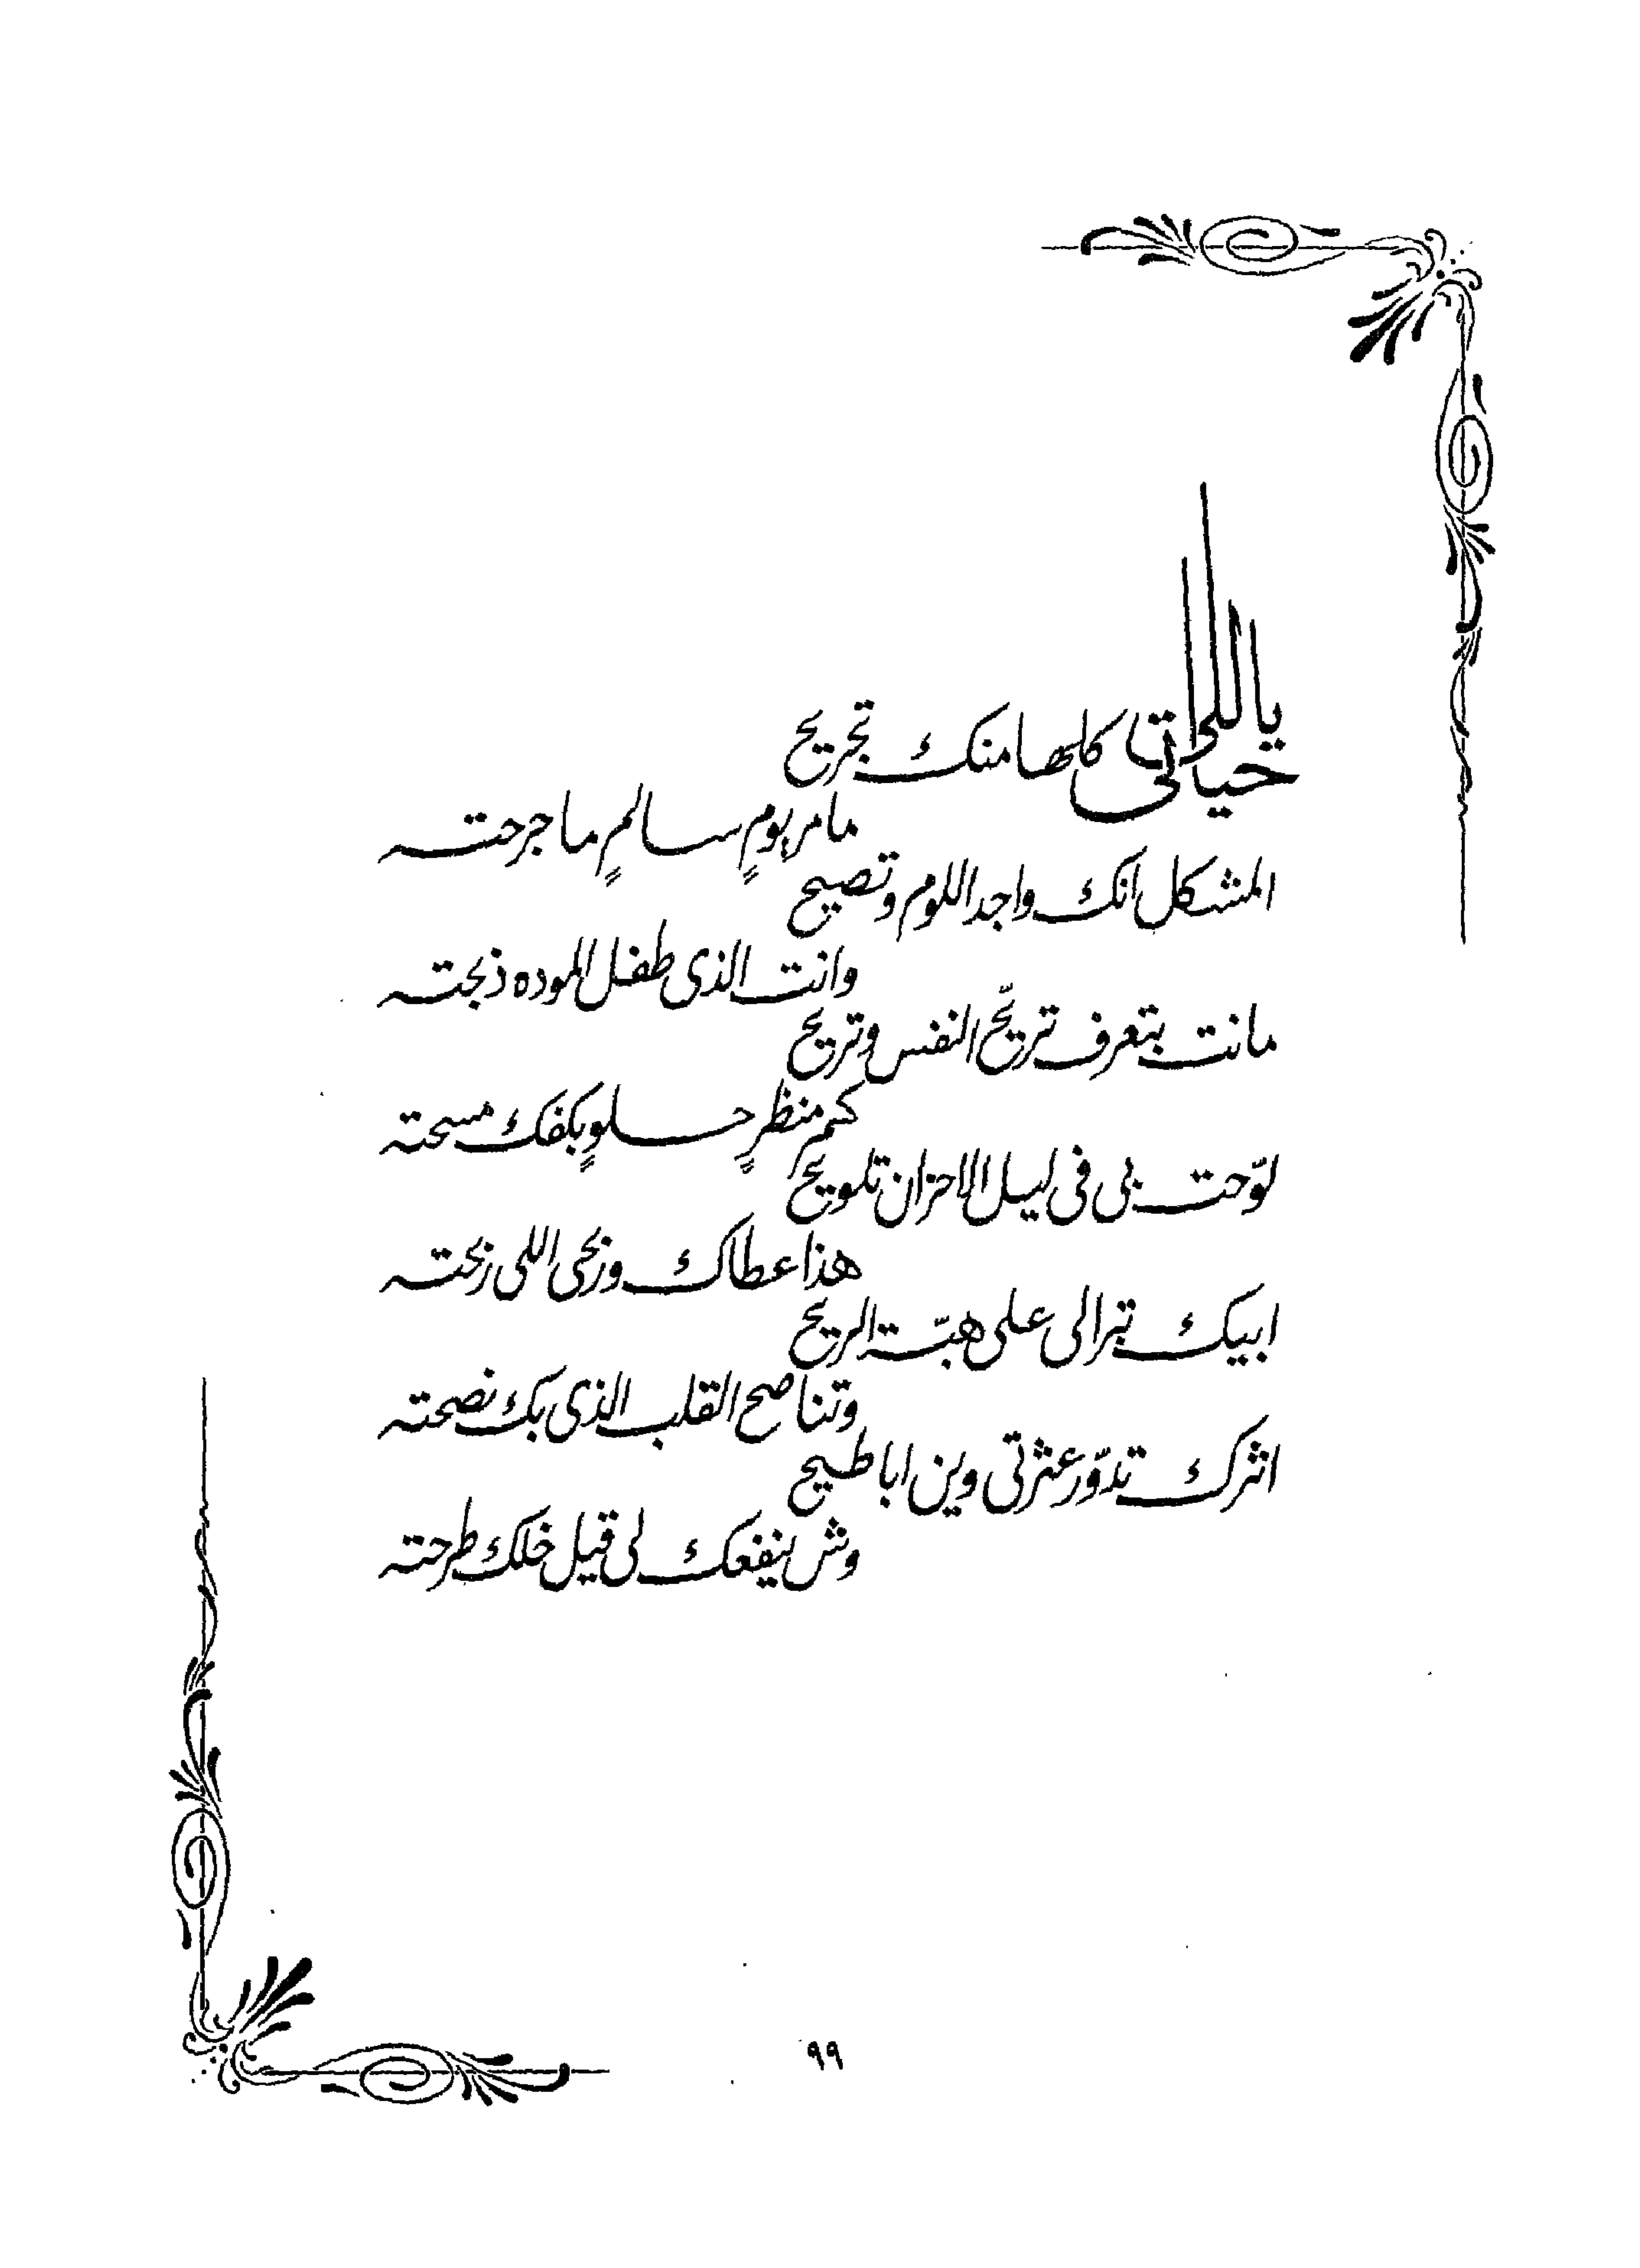 ياللي حياتي كلها منك تجريح
ما مر يومٍ سالمٍ ما جرحته
المشكل انك واجد اللوم وتصيح
وانت الذي طفل الموده ذبحته
مانت بتعرف تريّح النفس وتريح
كم منظرٍ حلوٍ بكفك مسحته
لوّحت بي في ليل الاحزان تلويح
هذا عطاك وربحي اللي ربحته
ابيك تبرالي على هبّة الريح
وتناصح القلب الذي بك نصحته
اثرك تدوّر عثرتي وين اباطيح
وش ينفعك لي قيل خلك طرحته
٩٩